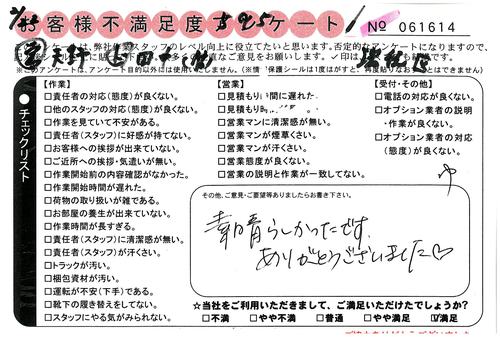 お客様不満足度アンケート
No 061614
弊社スタッフのレベル向上に役立てたいと思います。否定的なアンケートになりますので、
ご意見をお願いします。
※このアンケートは、アンケート目的以外には使用いたしません。
チェックリスト
【作業】
□責任者の対応(態度)が良くない。
□他のスタッフの対応(態度)が良くない。
□作業を見ていて不安がある。
□責任者(スタッフ)に好感が持てない。
□お客様への挨拶が出来ていない。
□ご近所への挨拶・気遣いが無い。
□作業開始前の内容確認がなかった。
□作業開始時間が遅れた。
□荷物の取り扱いが雑である。
□お部屋の養生が出来ていない。
□作業時間が長すぎる。
□責任者(スタッフ)に清潔感が無い。
□責任者(スタッフ)が汗くさい。
□トラックが汚い。
□梱包資材が汚い。
□運転が不安(下手)である。
□靴下の履き替えをしてない。
□スタッフにやる気がみられない。
【営業】
□見積もり時間に遅れた。
□見積もり
□営業マンに清潔感が無い。
□営業マンが煙草くさい。
□営業マンが汗くさい。
□営業態度が良くない。
□営業の説明と作業が一致してない。
【受付・その他】
□電話の対応が良くない。
□オプション業者の説明
・作業が良くない。
□オプション業者の対応
(態度)が良くない。
その他、ご意見・ご要望等ありましたらお書き下さい。
素晴らしかったです。
ありがとうございました♡
☆当社をご利用いただきまして、ご満足いただけたでしょうか?
□不満 □やや不満 □普通 □やや満足 ☑満足